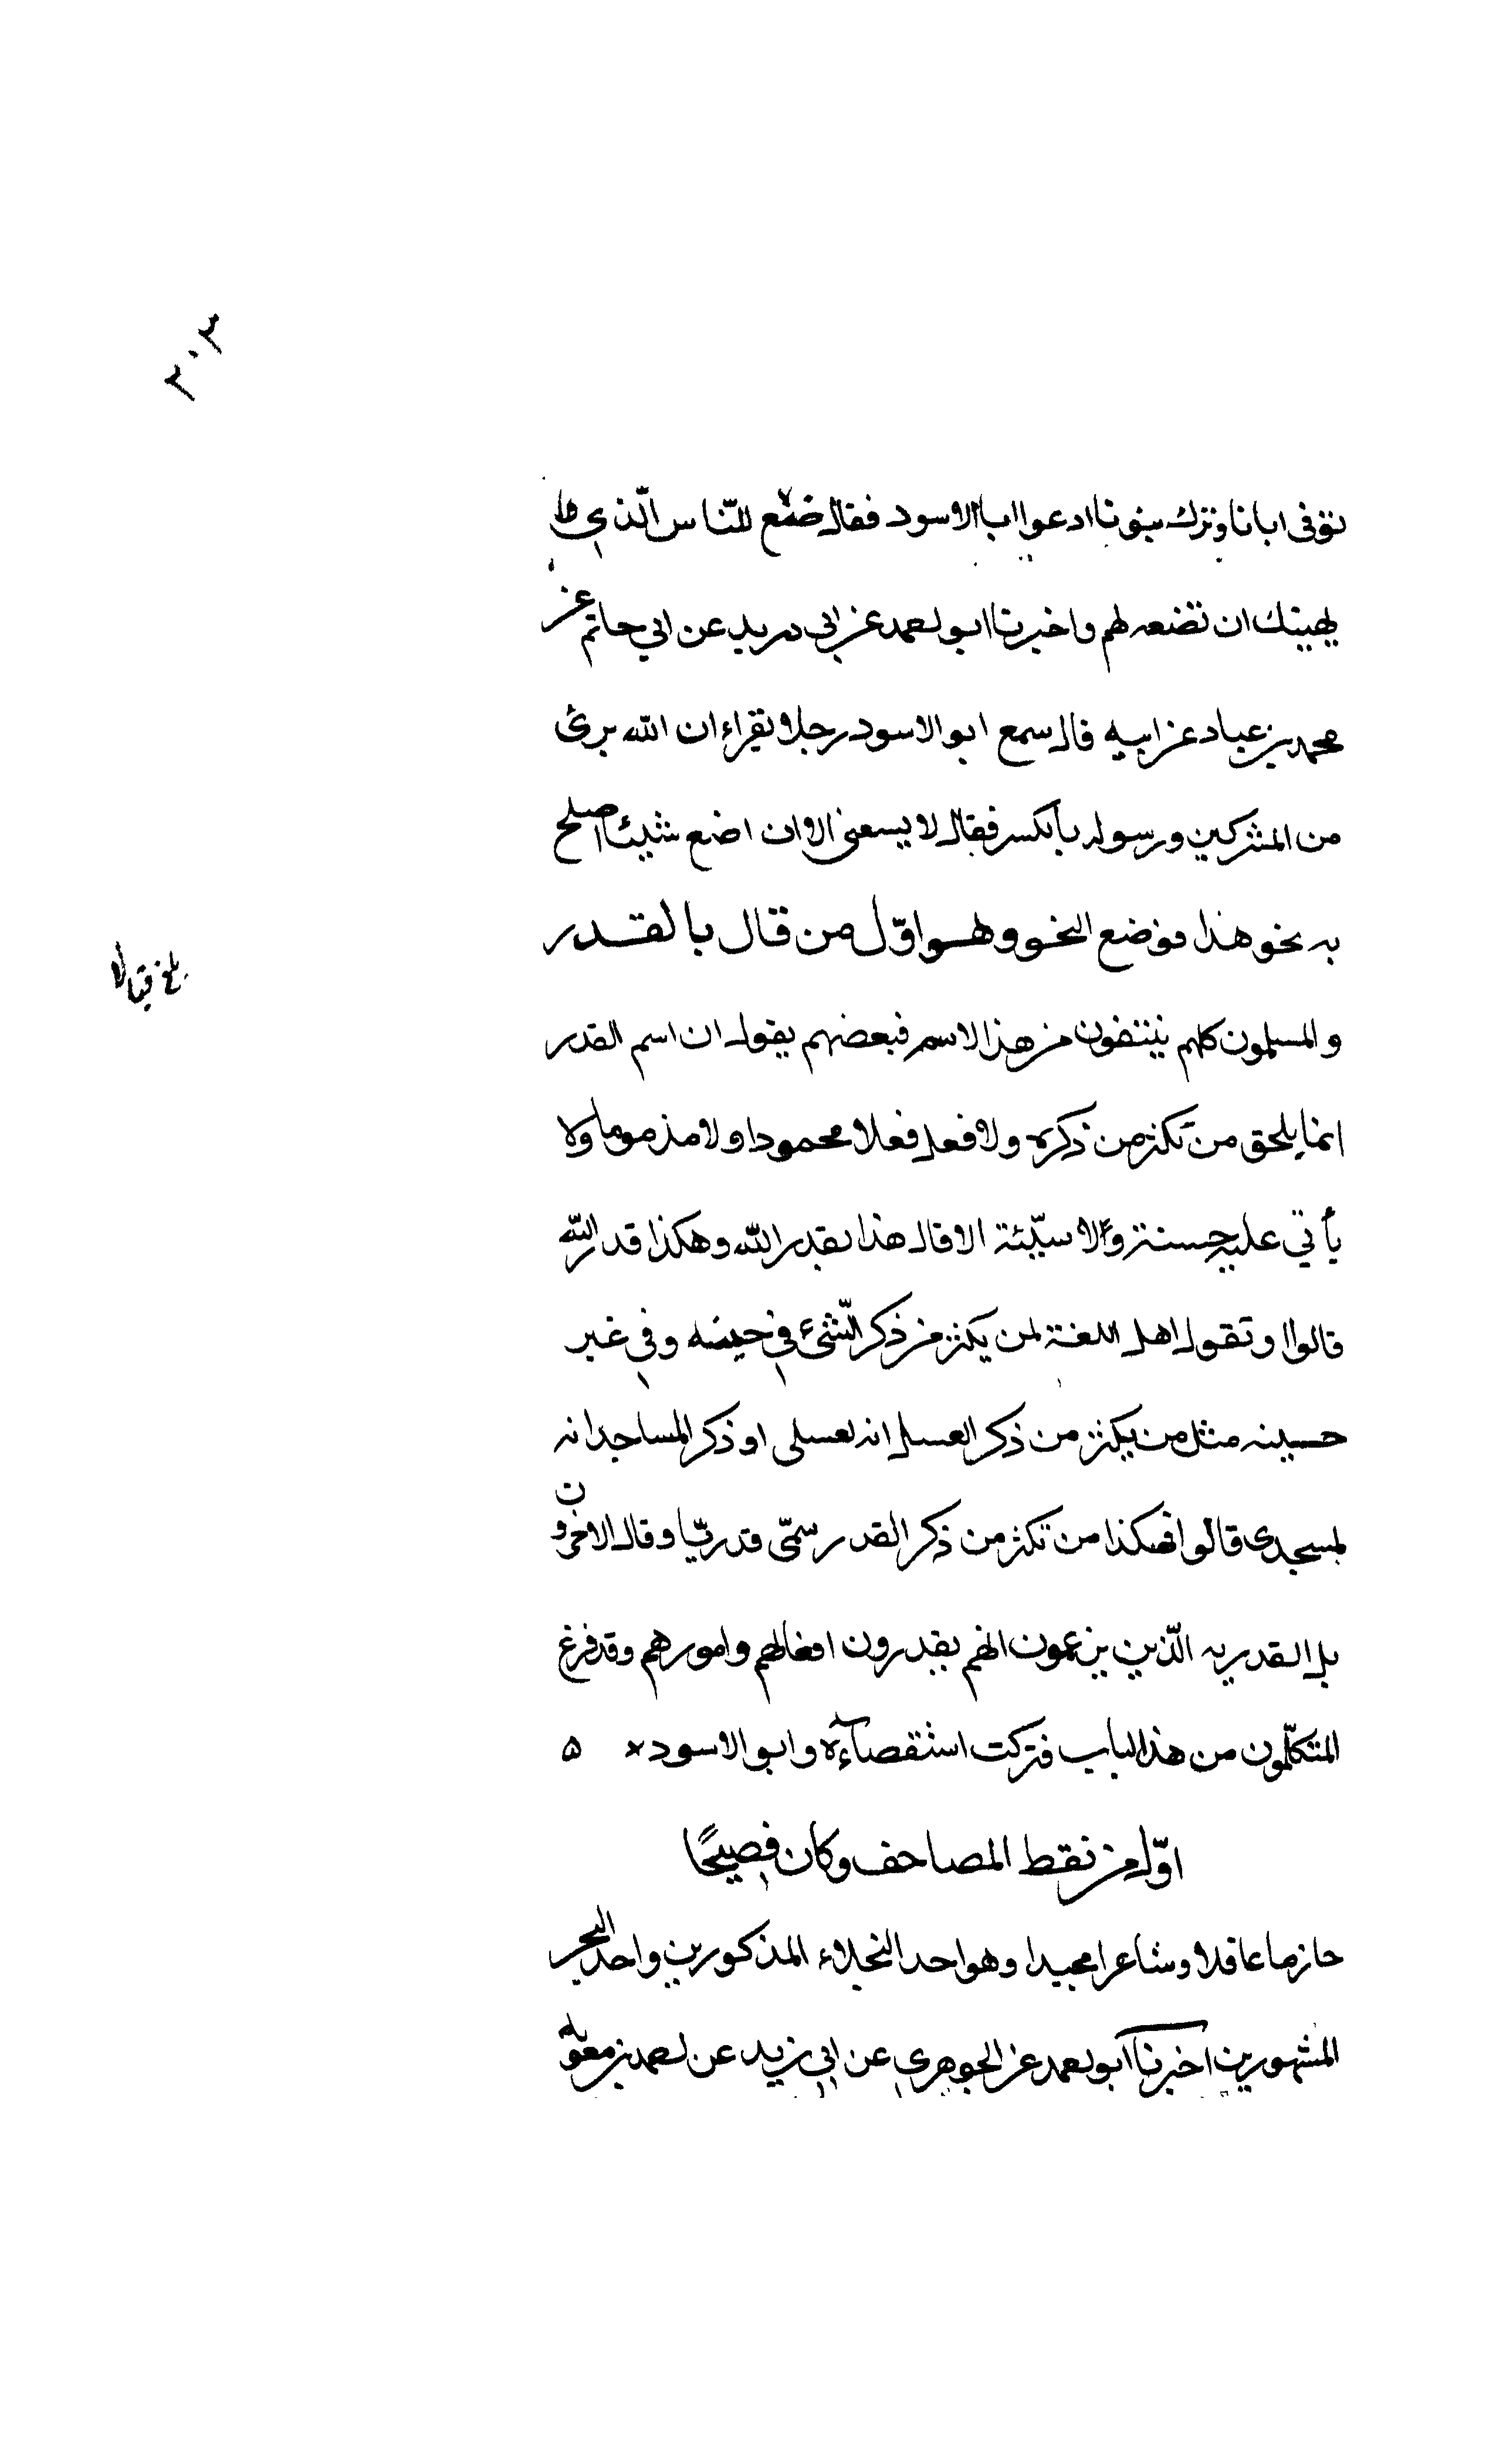 ٢٠٣
توفى ابانا وترك بنونا ادعوا ابا الاسود فقال ضع للناس الّذي كنا
نهيتك ان تضعه لهم واخبرنا ابو احمد عن ابي دريد عن ابي حاتم عن
محمد بن عباد عن ابيه قال سمع ابو الاسود رجلا يقراء ان الله برئ
من المشركين ورسوله بالكسر فقال لا يسعنى الا ان اضع شيئا اصلح
به نحو هذا فوضع النحو وهو اوّل من قال بالقدر
والمسلمون كلهم ينتفون من هذا الاسم فبعضهم يقول ان اسم القدر
انما يلحق من تكثر من ذكره ولا فعل فعلا محمودا ولا مذموما ولا
يأتي عليه حسنة ولا سيّئة الا قال هذا بقدر الله وهكذا قدر الله
قالوا وتقول اهل اللغة لمن يكثر من ذكر الشئ في حينه وفي غير
حينه مثل من يكثر من ذكر العسل انه لعسلى او ذكر المساجد انه
لمسجدى قالوا فهكذا من تكثر من ذكر القدر سمّى قدريّا وقال الاخرون
بل القدريه الّذين يزعمون انهم يقدرون افعالهم وامورهم وقد فرغ
المتكلّمون من هذا الباب فتركت استقصاءه وابو الاسود
اوّل من نقط المصاحف وكان فصيحًا
حازما عاقلا وشاعرا مجيدا وهو احد البخلاء المذكورين واحد البخر
المشهورين اخبرنا ابو احمد عن الجوهري عن ابي زيد عن احمد بن معويه